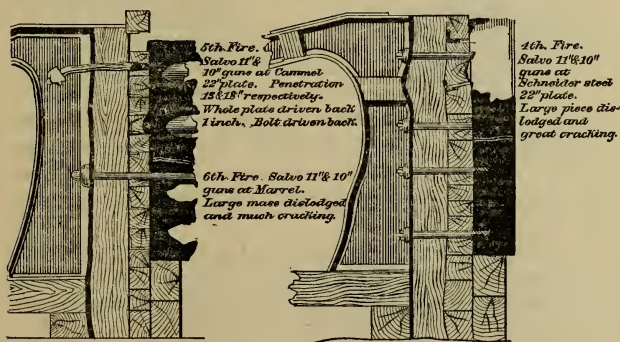 5th. Fire.
Salvo 11"&
10" guns at Cammel
22" plate. Penetration
13&18" respectively.
Whole plate driven back
1 inch. Bolt driven back.
6th. Fire. Salvo 11"& 10"
guns at Marrel.
Large mass dislodged
and much cracking.
4th. Fire.
Salvo 11"&10"
guns at
Schneider steel
22" plate.
Large piece dis-
lodged and
great cracking.